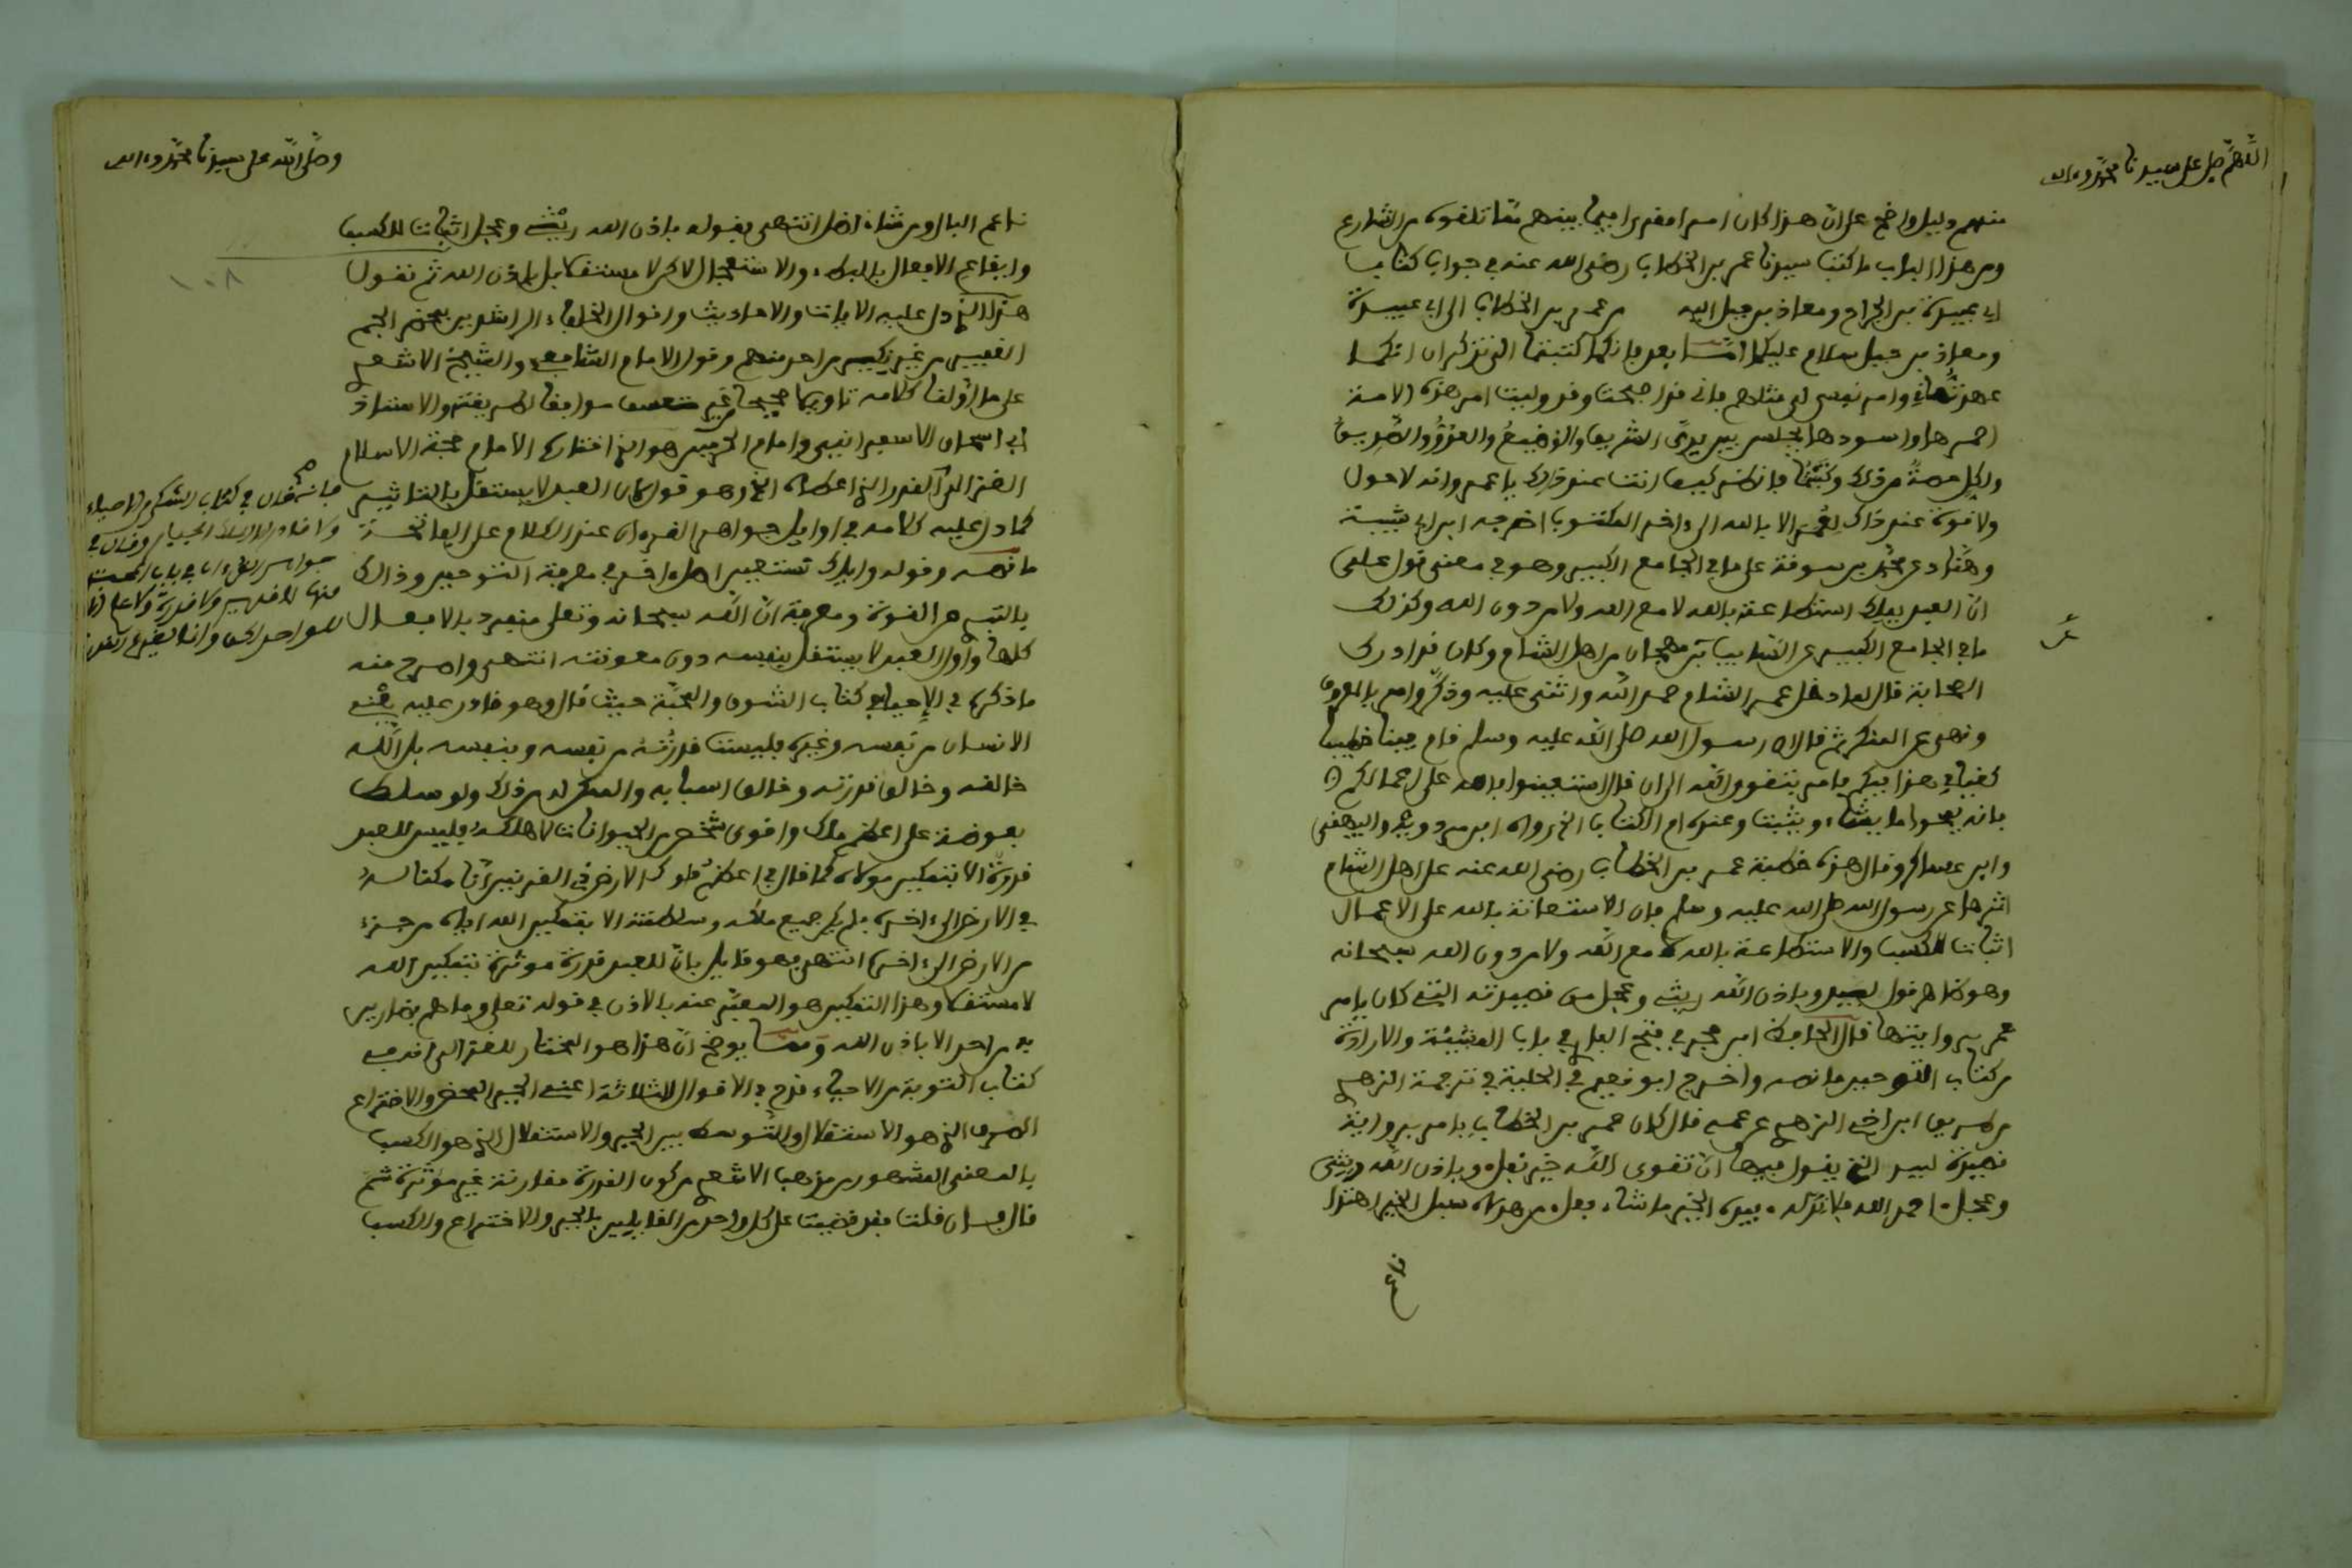 اللهم صل على سيدنا محمد وءاله
منهم دليل واضح على ان هذا كان امرا مقررا فيما بينهم مما تلقوه من الشارع
ومن هذا الباب ما كتب سيدنا عمر بن الخطاب رضي الله عنه في جواب كتاب
ابي عبيدة بن الجراح ومعاذ بن جبل اليه من عمر بن الخطاب الى ابي عبيدة
ومعاذ بن جبل سلام عليكما امّا بعد فانكما كتبتما الي تذكران انكما
عهدتماني وامر نفسي لي مهم فاني قد اصبحت وقد وليت امر هذه الامة
احمرها واسودها يجلس بين يديّ الشريف والوضيع والعدوّ والصديق
ولكل حصة من ذلك وكتبتما فانظر كيف انت عند ذلك يا عمر وانه لا حول
ولا قوة عند ذلك لعمر الا بالله الى ءاخر المكتوب اخرجه ابن ابي شيبة
وهنّاد عن محمد بن سوقة على ما في الجامع الكبير وهو في معنى قول علي
انّ العبد يملك استطاعة بالله لا مع الله ولا من دون الله وكذلك
ما في الجامع الكبير عن السّايب بن مهجان من اهل الشام وكان قد ادرك
الصحابة قال لما دخل عمر الشام حمد الله واثنى عليه وذكّر وامر بالمعروف
ونهى عن المنكر ثم قال ان رسول الله صلى الله عليه وسلم قام فينا خطيبا
كقيامي هذا فيكم فامر بتقوى الله الى ان قال استعينوا بالله على اعمالكم
فانه يمحوا ما يشاء ويثبت وعنده ام الكتاب اخرجه ابن مردويه والبيهقي
وابن عساكر وقال هذه خطبة عمر بن الخطاب رضي الله عنه على اهل الشام
اثرها عن رسول الله صلى الله عليه وسلم فان الاستعانة بالله على الاعمال
اثبات للكسب والاستطاعة بالله لا مع الله ولا من دون الله سبحانه
وهو ظاهر قول لبيد وباذن الله ريثي وعجل من قصيدته التي كان يامر
عمر بروايتها قال الحافظ ابن حجر في فتح الباري في باب المشيئة والارادة
من كتاب التوحيد ما نصه واخرج ابو نعيم في الحلية في ترجمة الزهري
من طريق ابن اخي الزهري عن عمه قال كان عمر بن الخطاب يامر برواية
قصيدة لبيد التي يقول فيها انّ تقوى الله خير نفل وباذن الله ريثي
وعجل احمد الله فلا ندّ له بيده الخير ما شاء فعل من هداه سبل الخير اهتدا
ناعم
وصلى الله على سيدنا محمد وءاله
١٠٨
ناعم البال ومن شاء اضل انتهى فقوله باذن الله ريثي وعجل اثبات للكسب
وايقاع الافعال بالبطء والاستعجال لاكن لا مستقلا بل باذن الله ثم نقول
هذا الذي دل عليه الايات والاحاديث واقوال الخلفاء الراشدين بمحضر الجم
الغفير من غير نكير من احد منهم وقول الامام الشافعي والشيخ الاشعري
على ما اوّلنا كلامه تاويلا صحيحا غير متعسف موافقا لطريقته والاستاذ
ابي اسحاق الاسفرايني وامام الحرمين هو الذي اختاره الامام حجة الاسلام
الغزالي القدر الذي اعطاه الحق وهو قول ان العبد لا يستقل بالتاثير
كما دل عليه كلامه في اوايل جواهر القرءان عند الكلام على الفاتحة
ما نصه وقوله واياك نستعين اصل اخر في معرفة التوحيد وذالك
بالتبري من القوة ومعرفة انّ الله سبحانه وتعلى منفرد بالافعال
كلها وان العبد لا يستقل بنفسه دون معونته انتهى واصرح منه
ما ذكره في الاحياء في كتاب الشوق والمحبّة حيث قال وهو قادر عليه يعني
الانسان من نفسه وغيره فليست قدرته من نفسه وبنفسه بل الله
خالقه وخالق قدرته وخالق اسبابه والممكن له من ذلك ولو سلط
بعوضة على اعظم ملك واقوى شخص من الحيوانات لاهلكه فليس للعبد
قدرة الا بتمكين مولاه كما قال في اعظم ملوك الارض ذي القرنين انّا مكنا له
في الارض الى ءاخره فلم يكن جميع ملكه وسلطنته الا بتمكين الله اياه من جزء
من الارض الى ءاخره انتهى فهو قايل بانّ للعبد قدرة موثرة بتمكين الله
لا مستقلا وهذا التمكين هو المعبّر عنه بالاذن في قوله تعلى وما هم بضارين
به من احد الا باذن الله ومما يوضح انّ هذا هو المختار للغزالي انه في
كتاب التوبة من الاحياء قدح في الاقوال الثلاثة اعني الجبر المحض والاختراع
الصرف الذي هو الاستقلال والتوسط بين الجبر والاستقلال الذي هو الكسب
بالمعنى المشهور من مذهب الاشعري من كون القدرة مقارنة غير موثرة ثم
قال فان قلت فقد قضيت على كل واحد من القايلين بالجبر والاختراع والكسب
فانه قال في كتاب الشكر من الاحياء
ولا قادر الا الملك الجبار وقال في